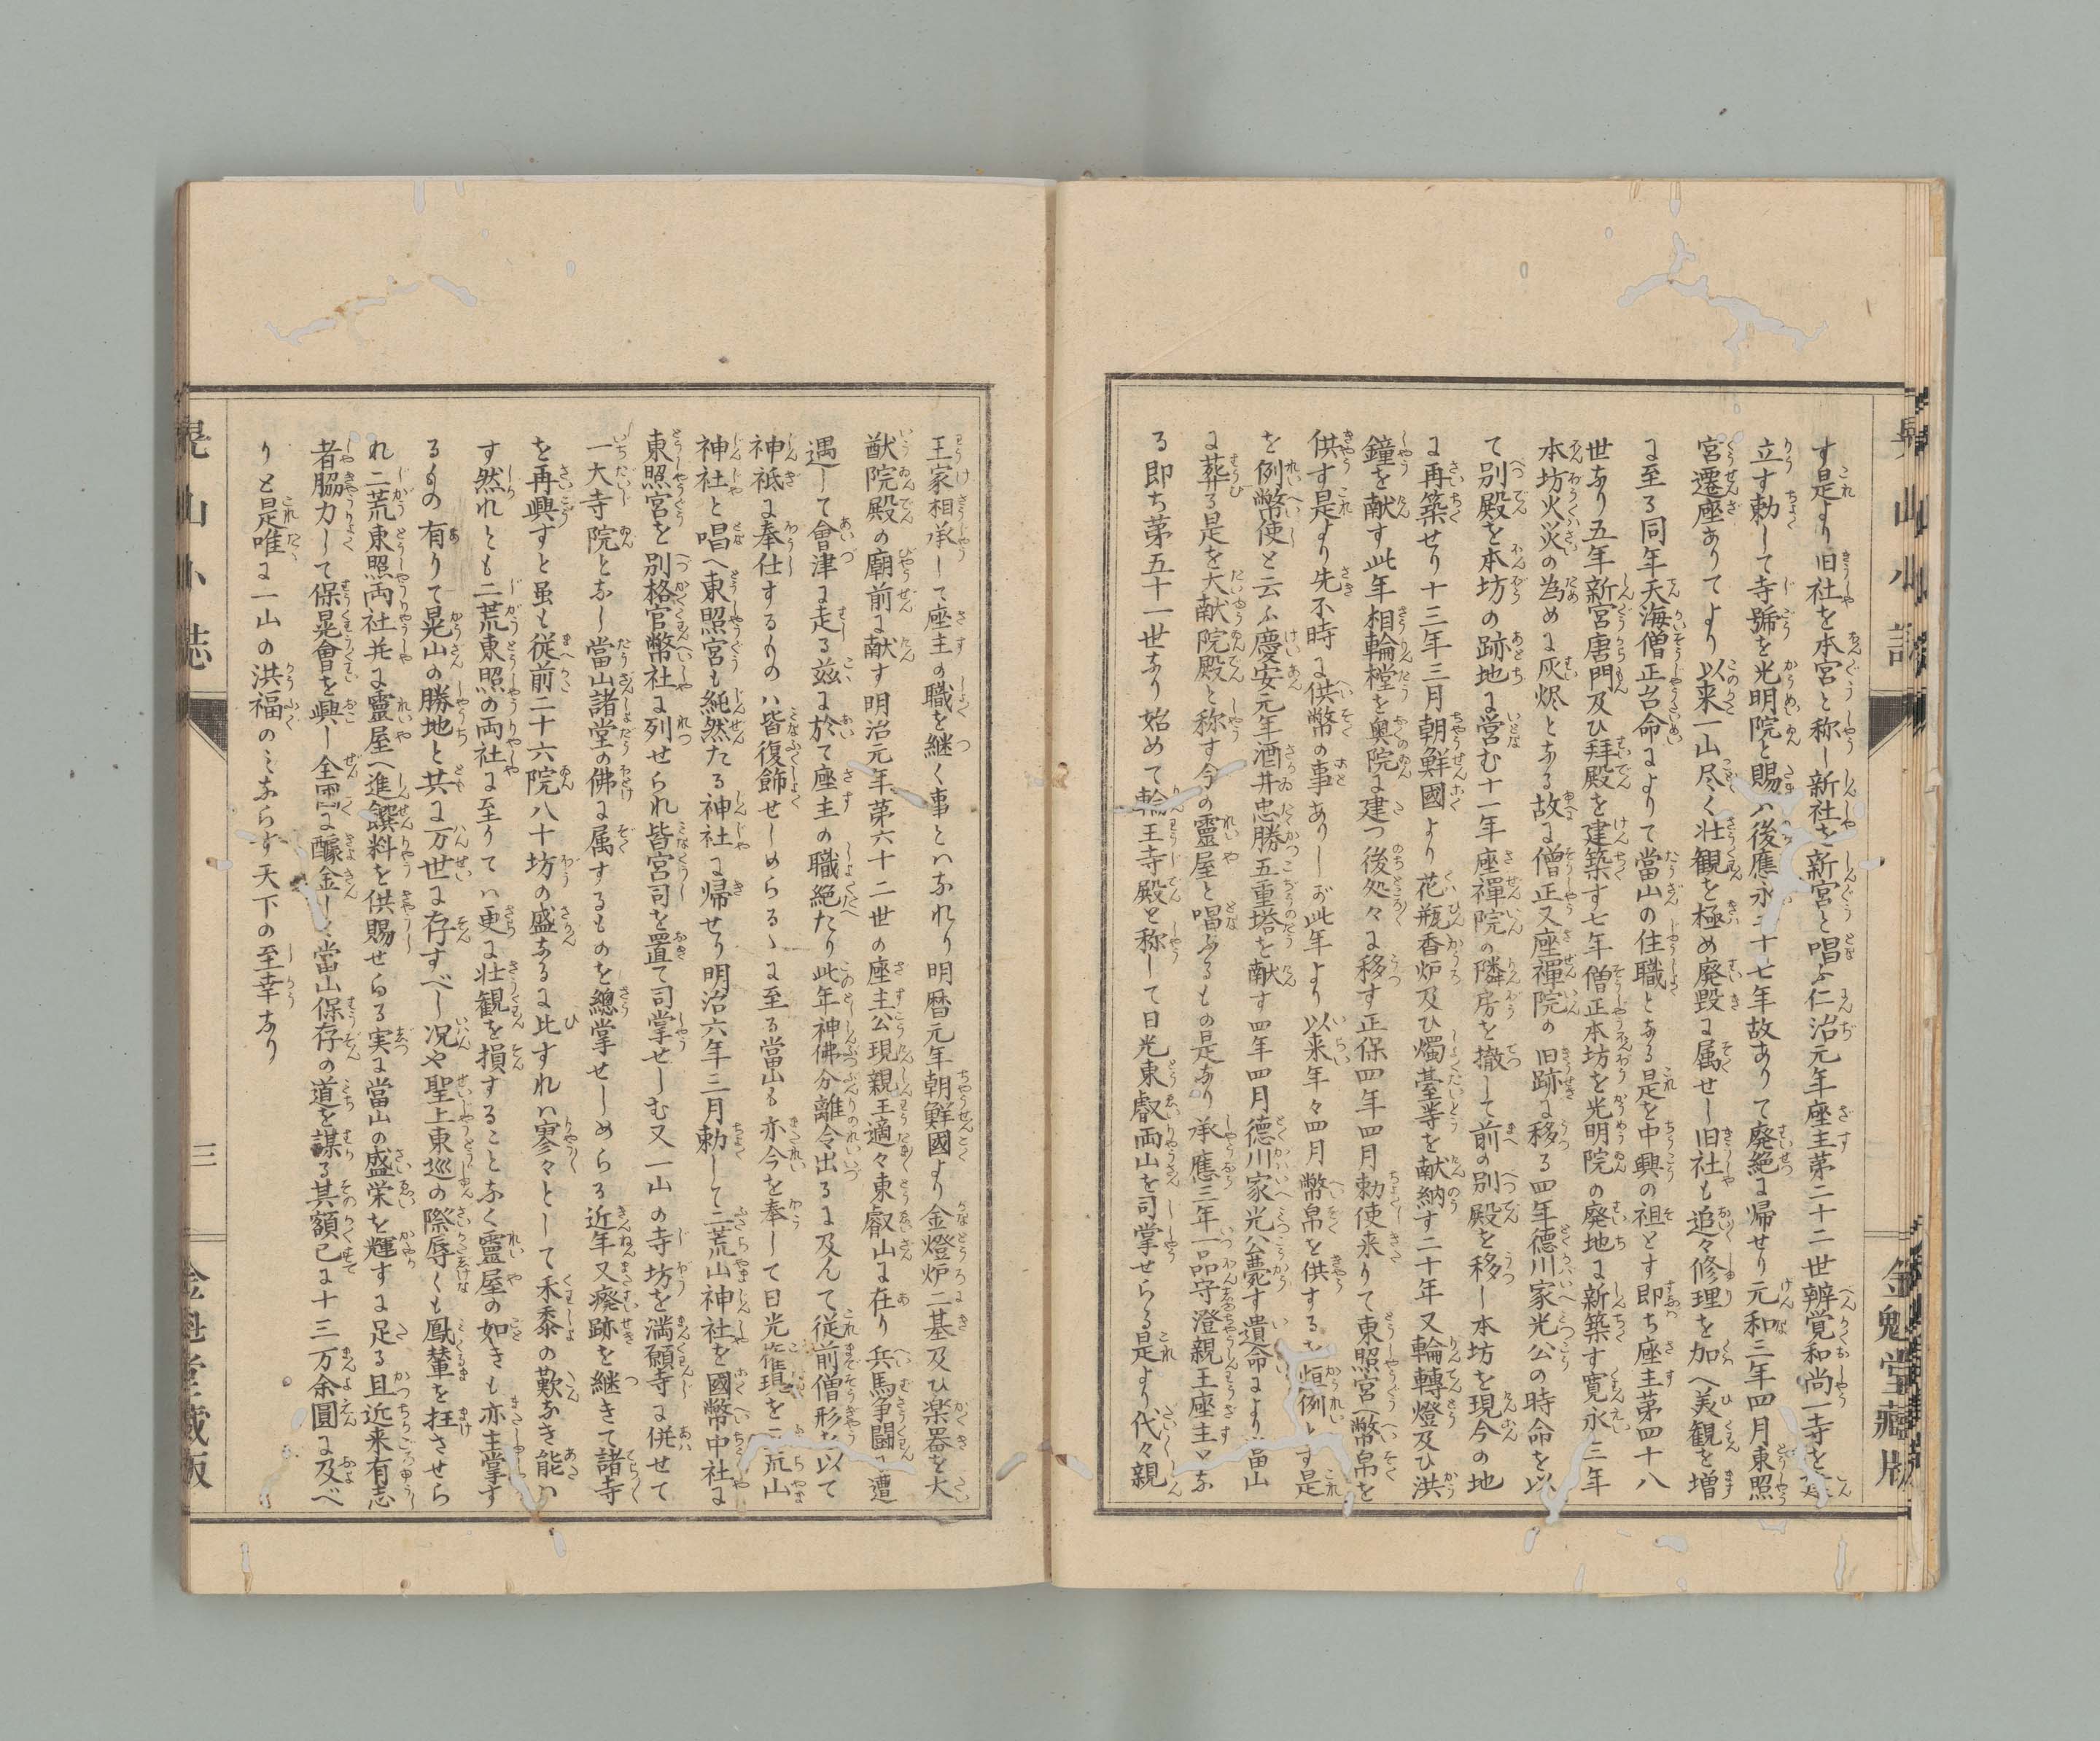 す是より旧社を本宮と称し新社を新宮と唱ふ仁治元年座主第二十二世辨覚和尚一寺を
立す勅して寺號を光明院と賜ハ後應永二十七年故ありて廃絶に帰せり元和三年四月東照
宮遷座ありてより以来一山尽く壮観を極め廃毀に属せし旧社も追々修理を加へ美観を増
に至る同年天海僧正台命によりて當山の住職となる是を中興の祖とす即ち座主第四十八
世なり五年新宮唐門及ひ拜殿を建築す七年僧正本坊を光明院の廃地に新築す寛永三年
本坊火災の為めに灰烬となる故に僧正又座禪院の旧跡に移る四年德川家光公の時命を以
て別殿を本坊の跡地に営む十一年座禪院の隣房を撤して前の別殿を移し本坊を現今の地
に再築せり十三年三月朝鮮國より花瓶香炉及ひ燭臺等を献納す二十年又輪轉燈及ひ洪
鐘を献す此年相輪樘を奥院に建つ後処々に移す正保四年四月勅使来りて東照宮へ幣帛を
供す是より先不時に供幣の事ありしが此年より以来年々四月幣帛を供するを恒例とす是
を例幣使と云ふ慶安元年酒井忠勝五重塔を献す四年四月德川家光公薨す遺命により當山
に葬る是を大献院殿と称す今の靈屋と唱ふるもの是なり承應三年一品守澄親王座主とな
る即ち第五十一世なり始めて輪王寺殿と称して日光東叡両山を司掌せらる是より代々親
王家相承して座主の職を継く事とハなれり明暦元年朝鮮國より金燈炉二基及ひ楽器を大
猷院殿の廟前に献す明治元年第六十二世の座主公現親王適々東叡山に在り兵馬争闘に遭
遇して會津に走る茲に於て座主の職絶たり此年神佛分離令出るに及んて従前僧形を以て
神祇に奉仕するものハ皆復飾せしめらるゝに至る當山も亦今を奉して日光権現を二荒山
神社と唱へ東照宮も純然たる神社に帰せり明治六年三月勅して二荒山神社を國幣中社に
東照宮を別格官幣社に列せられ皆宮司を置て司掌せしむ又一山の寺坊を満願寺に併せて
一大寺院となし當山諸堂の佛に属するものを總掌せしめらる近年又癈跡を継きて諸寺
を再興すと虽も従前二十六院八十坊の盛なるに比すれハ寥々として禾黍の歎なき能ハ
す然れとも二荒東照の両社に至りてハ更に壮観を損することなく靈屋の如きも亦主掌す
るもの有りて晃山の勝地と共に万世に存すべし况や聖上東巡の際辱くも鳳輦を抂させら
れ二荒東照両社并に靈屋へ進饌料を供賜せらる実に當山の盛栄を輝すに足る且近来有志
者脇力して保晃會を興し全國に醵金して當山保存の道を謀る其額已に十三万余圓に及べ
りと是唯に一山の洪福のミならす天下の至幸なり
晃山小誌
三
金魁堂蔵版